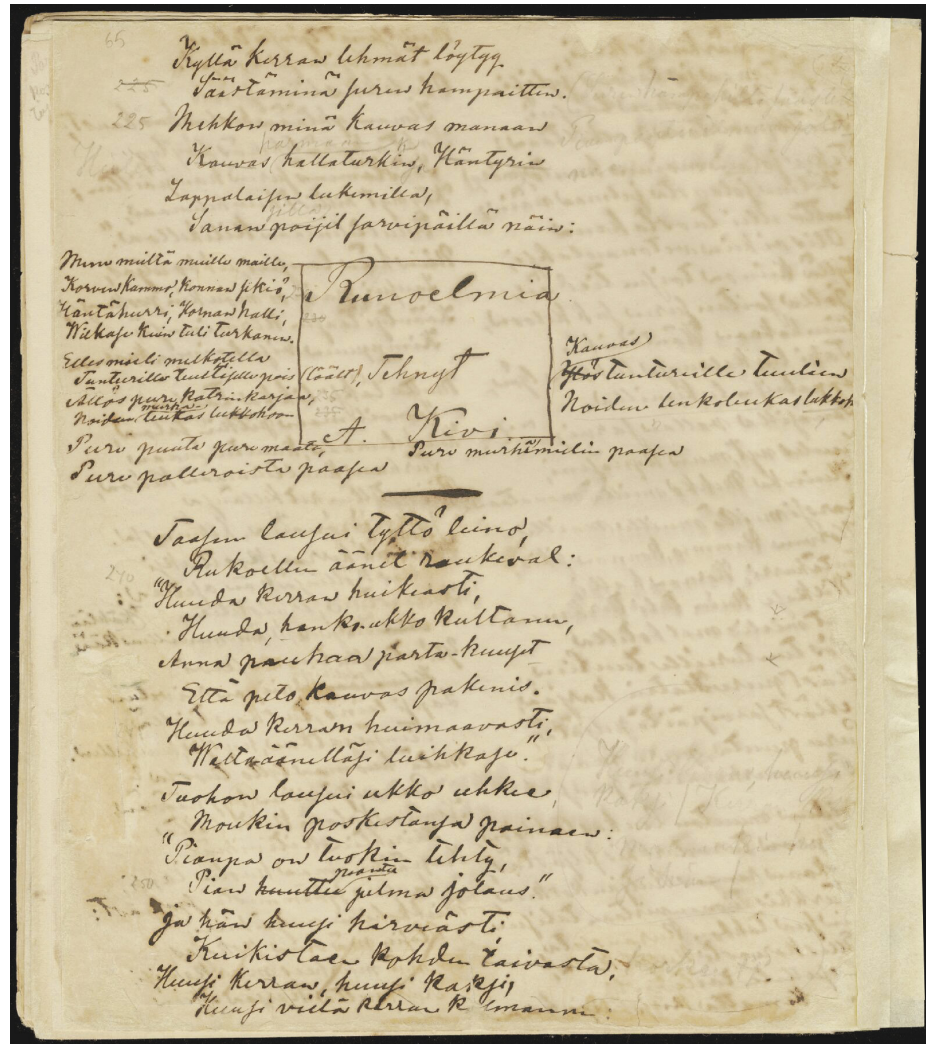 65
Kyllä kerran lehmät löytyy
225 Säästäminä suren hampaitten.
225 Mehkon minä kauvas manaan
Kauvas hallaturkin, Häntyrin
Lappalaisen lukemilla,
Sanan poijil sarvipäillä näin:
Mene mieltä muille maille,
Korven kammo, konnan sikiö,
Häntähurri, Hornan halli,
Wilkase kuin tuli turkanen.
Elles mieli melkotella
Tunturille tuultiselle pois (täält),
Ällös pure Katrin karjaa,
Noiden murha-
Pure puuta pure maata,
Pure palleroista paasea
Runoelmia
230
Tehnyt
A. Kivi
Kauvas
Ylös tuntureille tuulien
Noiden
Pure murhémielin paasea
Taasen lausui tyttö leino,
Rukoellen äänil raukeval:
240
"Huuda kerran huikeasti,
Huuda, hanko-ukko kultanen,
Anna pauhaa parta-kuuset
Että peto kauvas pakenis.
Huuda kerran huimaavasti,
Waltaäänelläsi luihkase."
Tuohon lausui ukko uhkee,
Moukin poskestansa painaen:
"Pianpa on tuokin tehty,
250 Pian huuttu julma jolaus."
Ja hän huusi hirviästi,
Kuikistaen kohden taivasta,
Huusi kerran, huusi kaksi,
Huusi vielä kerran